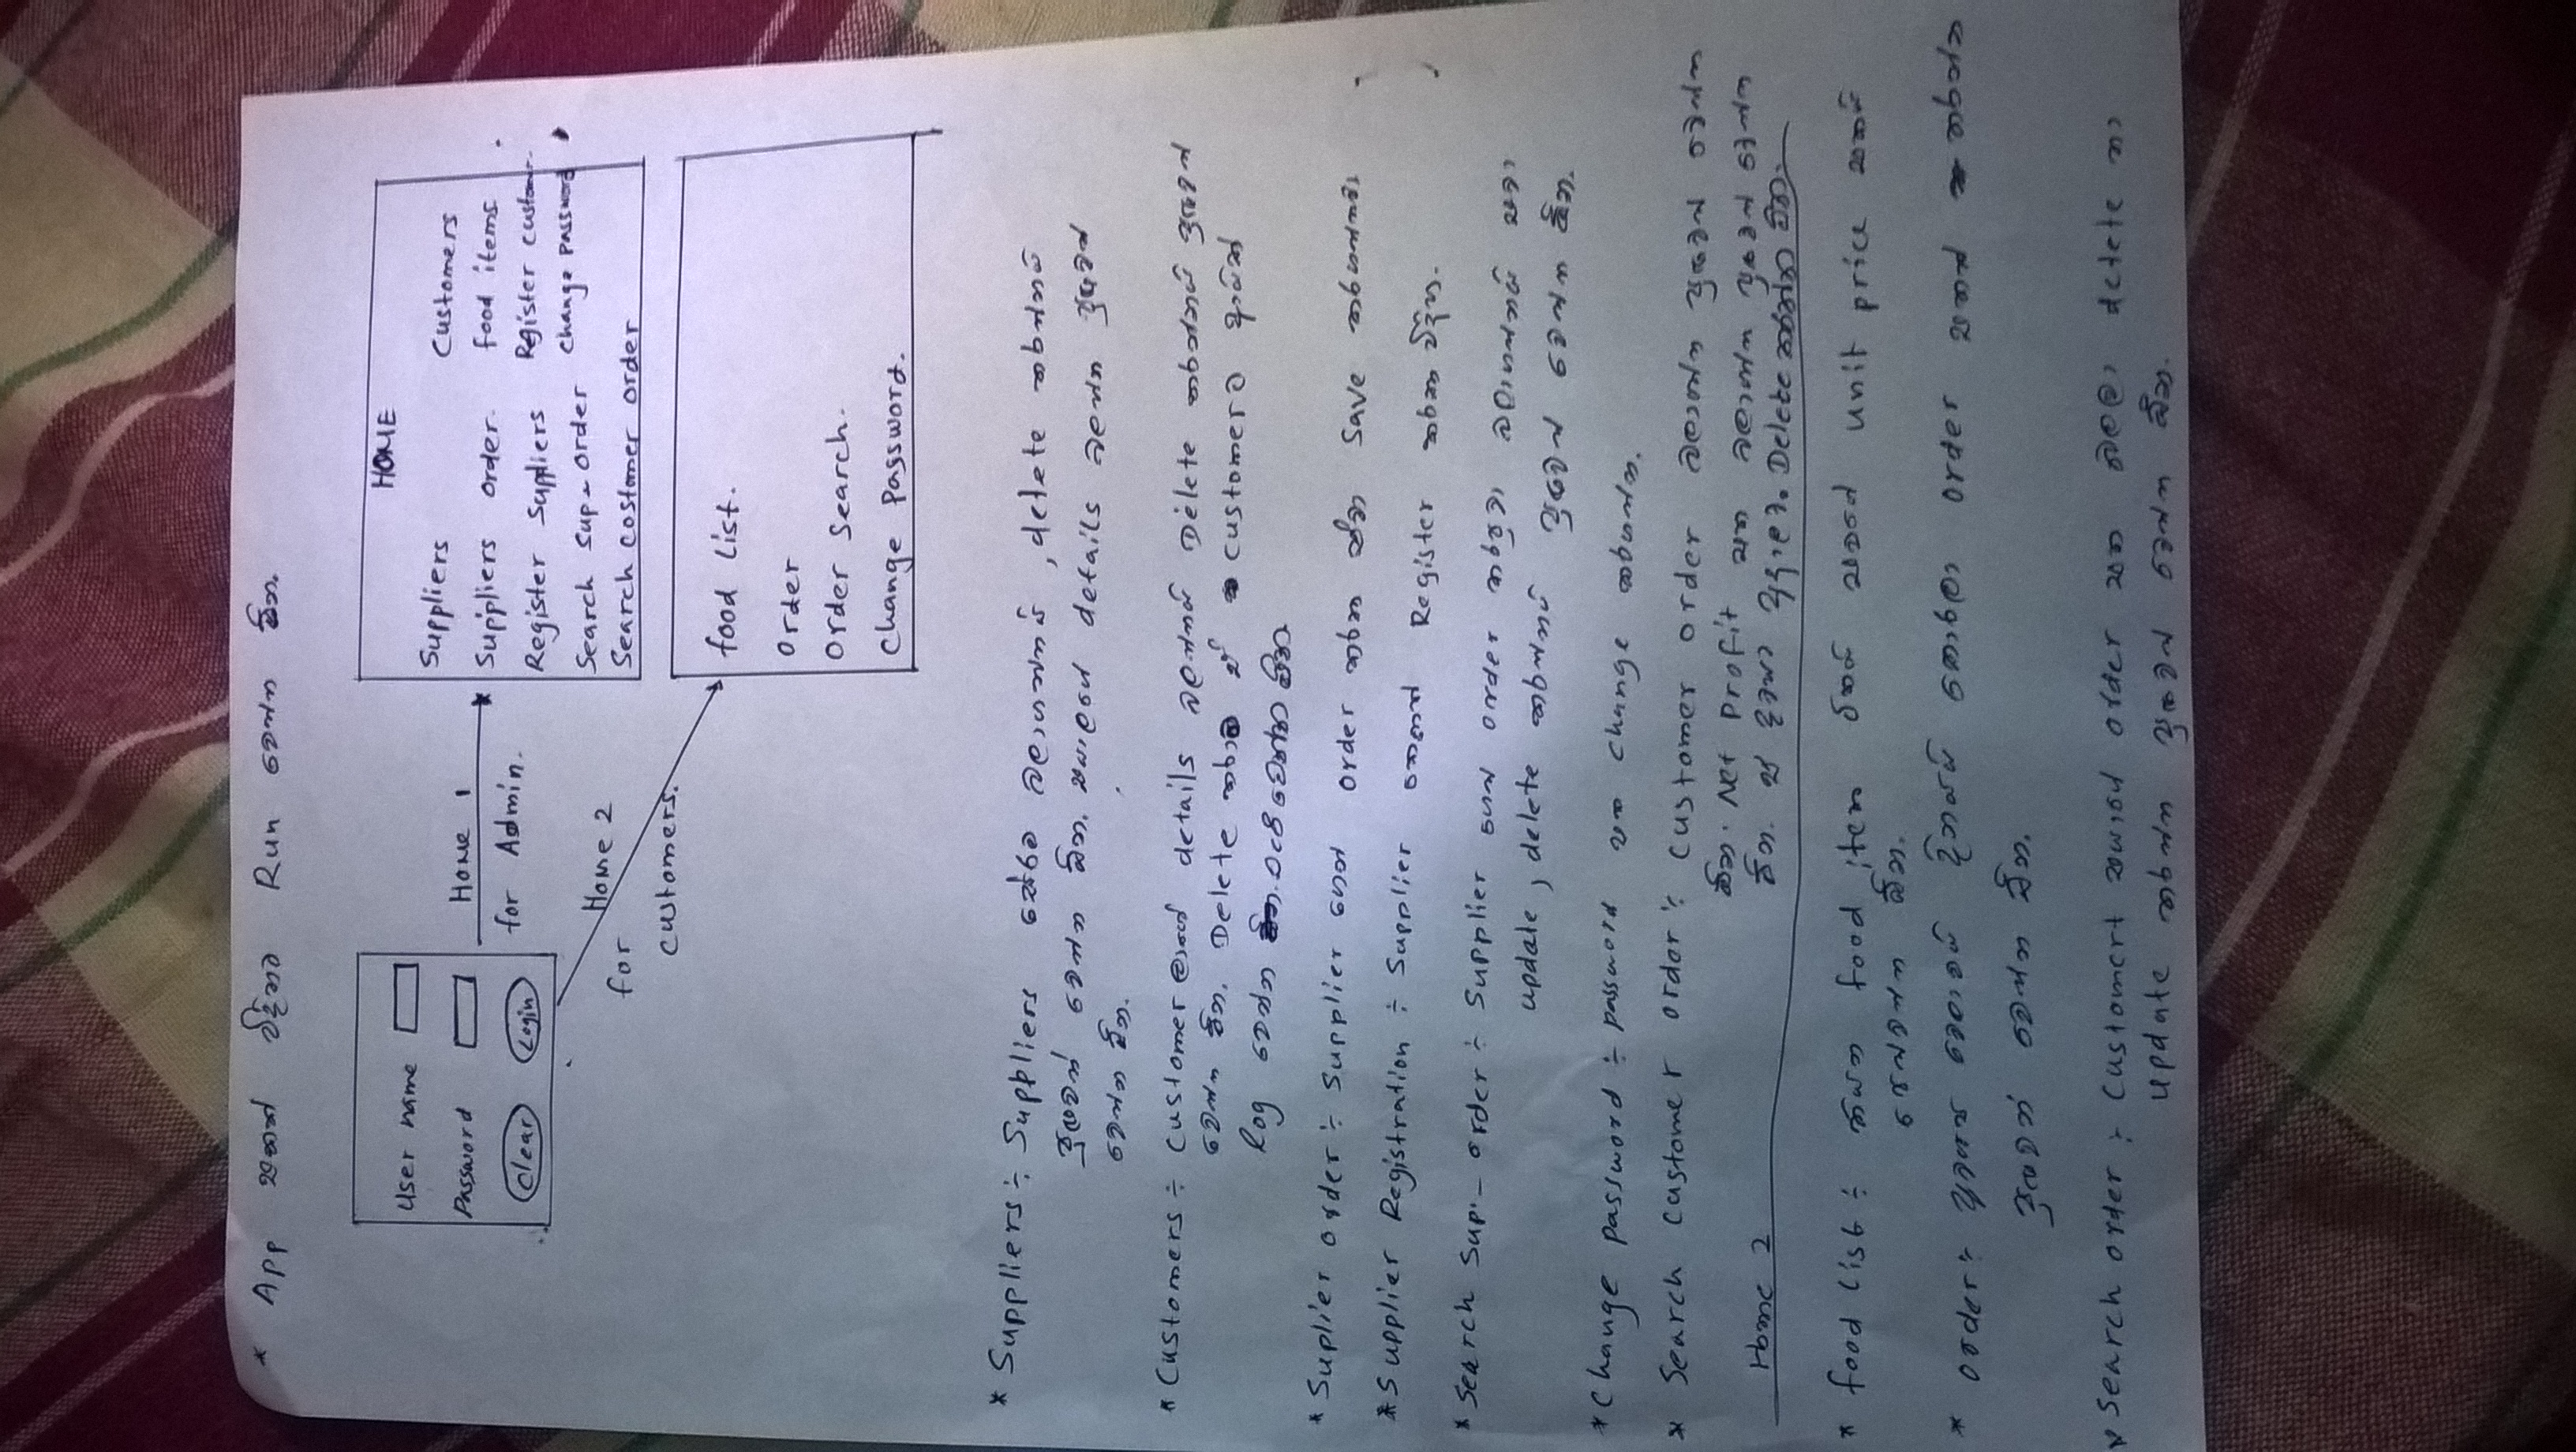 * App එකක් විදිහට Run වෙන්න ඕන.
User name
Password
Clear Login
Home 1
for Admin.
Home 2
for
customers.
HOME
Suppliers Customers
Suppliers order. food items
Register Suppliers Register customer.
Search Sup - Order Change Password
Search costomer order
food List.
Order
Order Search.
Change Password.
* Suppliers ÷ Suppliers සේරම බලාගන්නයි , delete කරන්නයි
පුළුවන් වෙන්න ඕන. එයාලගේ details බලන්න පුළුවන්
වෙන්න ඕන.
* Customers ÷ customer ලාගේ details බලන්නයි Delete කරන්නයි පුළුවන්
වෙන්න ඕන. Delete කරාම ඒ customerට ආයිත්
log වෙන්න බැරි වෙන්න ඕන
* Suplier order ÷ Supplier ගෙන් order කරන ඒවා Save කරගන්නවා
* Supplier Registration ÷ Supplier කෙනෙක් Register කරන විදිහ.
* Search Sup. - order ÷ Supplier ගෙන් order කරපුවා බලාගන්නයි ඒවා
update , delete කරන්නයි පුළුවන් වෙන්න ඕන.
* Change password ÷ password එක change කරගන්න.
* Search customer order ÷ customer order බලාගන්න පුළුවන් වෙන්න
ඕන. Net Profit එක බලාගන්න පුළුවන් වෙන්න
ඕන. ඒ දවසට අදාලව. Delete කරන්න ඕන.
Home 2
* food List ÷ තියන food item ටිකයි ඒවගේ unit price එකයි
පෙන්වන්න ඕන.
* Order ÷ අවශ්‍ය වෙලාවයි දිනයයි තෝරලා order එකක් කරන්න
පුළුවන් වෙන්න ඕන.
* Search order ÷ Customert එයාගේ order එක බලලා delete හා
update කරන්න පුළුවන් වෙන්න ඕන.